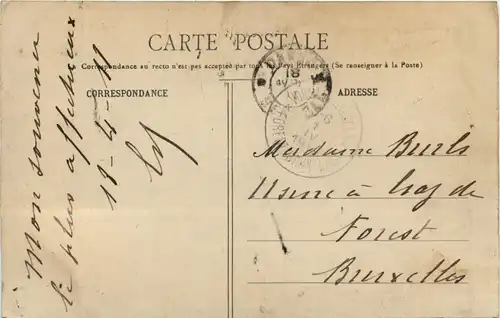 CARTE POSTALE
Correspondance au recto n'est pas acceptée par tous les Pays Étrangers (Se renseigner à la Poste)
CORRESPONDANCE
ADRESSE
Mon souvenir
le plus affectueux
18-4-11
Madame Burls
Usine à Gaz de
Forest
Bruxelles
18
FOREST